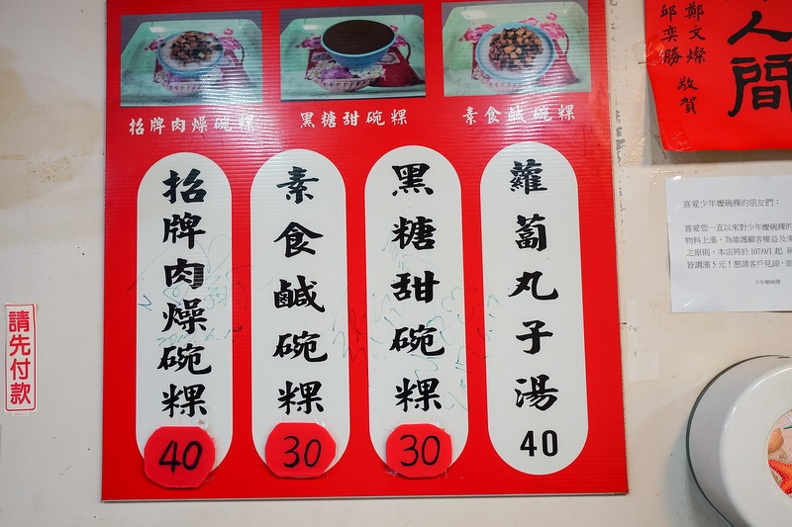 招牌肉燥碗粿
黑糖甜碗粿
素食鹹碗粿
招牌肉燥碗粿
40
素食鹹碗粿
30
黑糖甜碗粿
30
蘿蔔丸子湯
40
請先付款
人間
鄭文燦
邱奕勝
敬賀
喜愛少年嬤碗粿的朋友們：
喜愛您一直以來對少年嬤碗粿的
物料上漲，為維護顧客權益及
之原則，本店將於 107/9/1 起
皆調漲 5 元！懇請客戶見諒，並
少年嬤碗粿